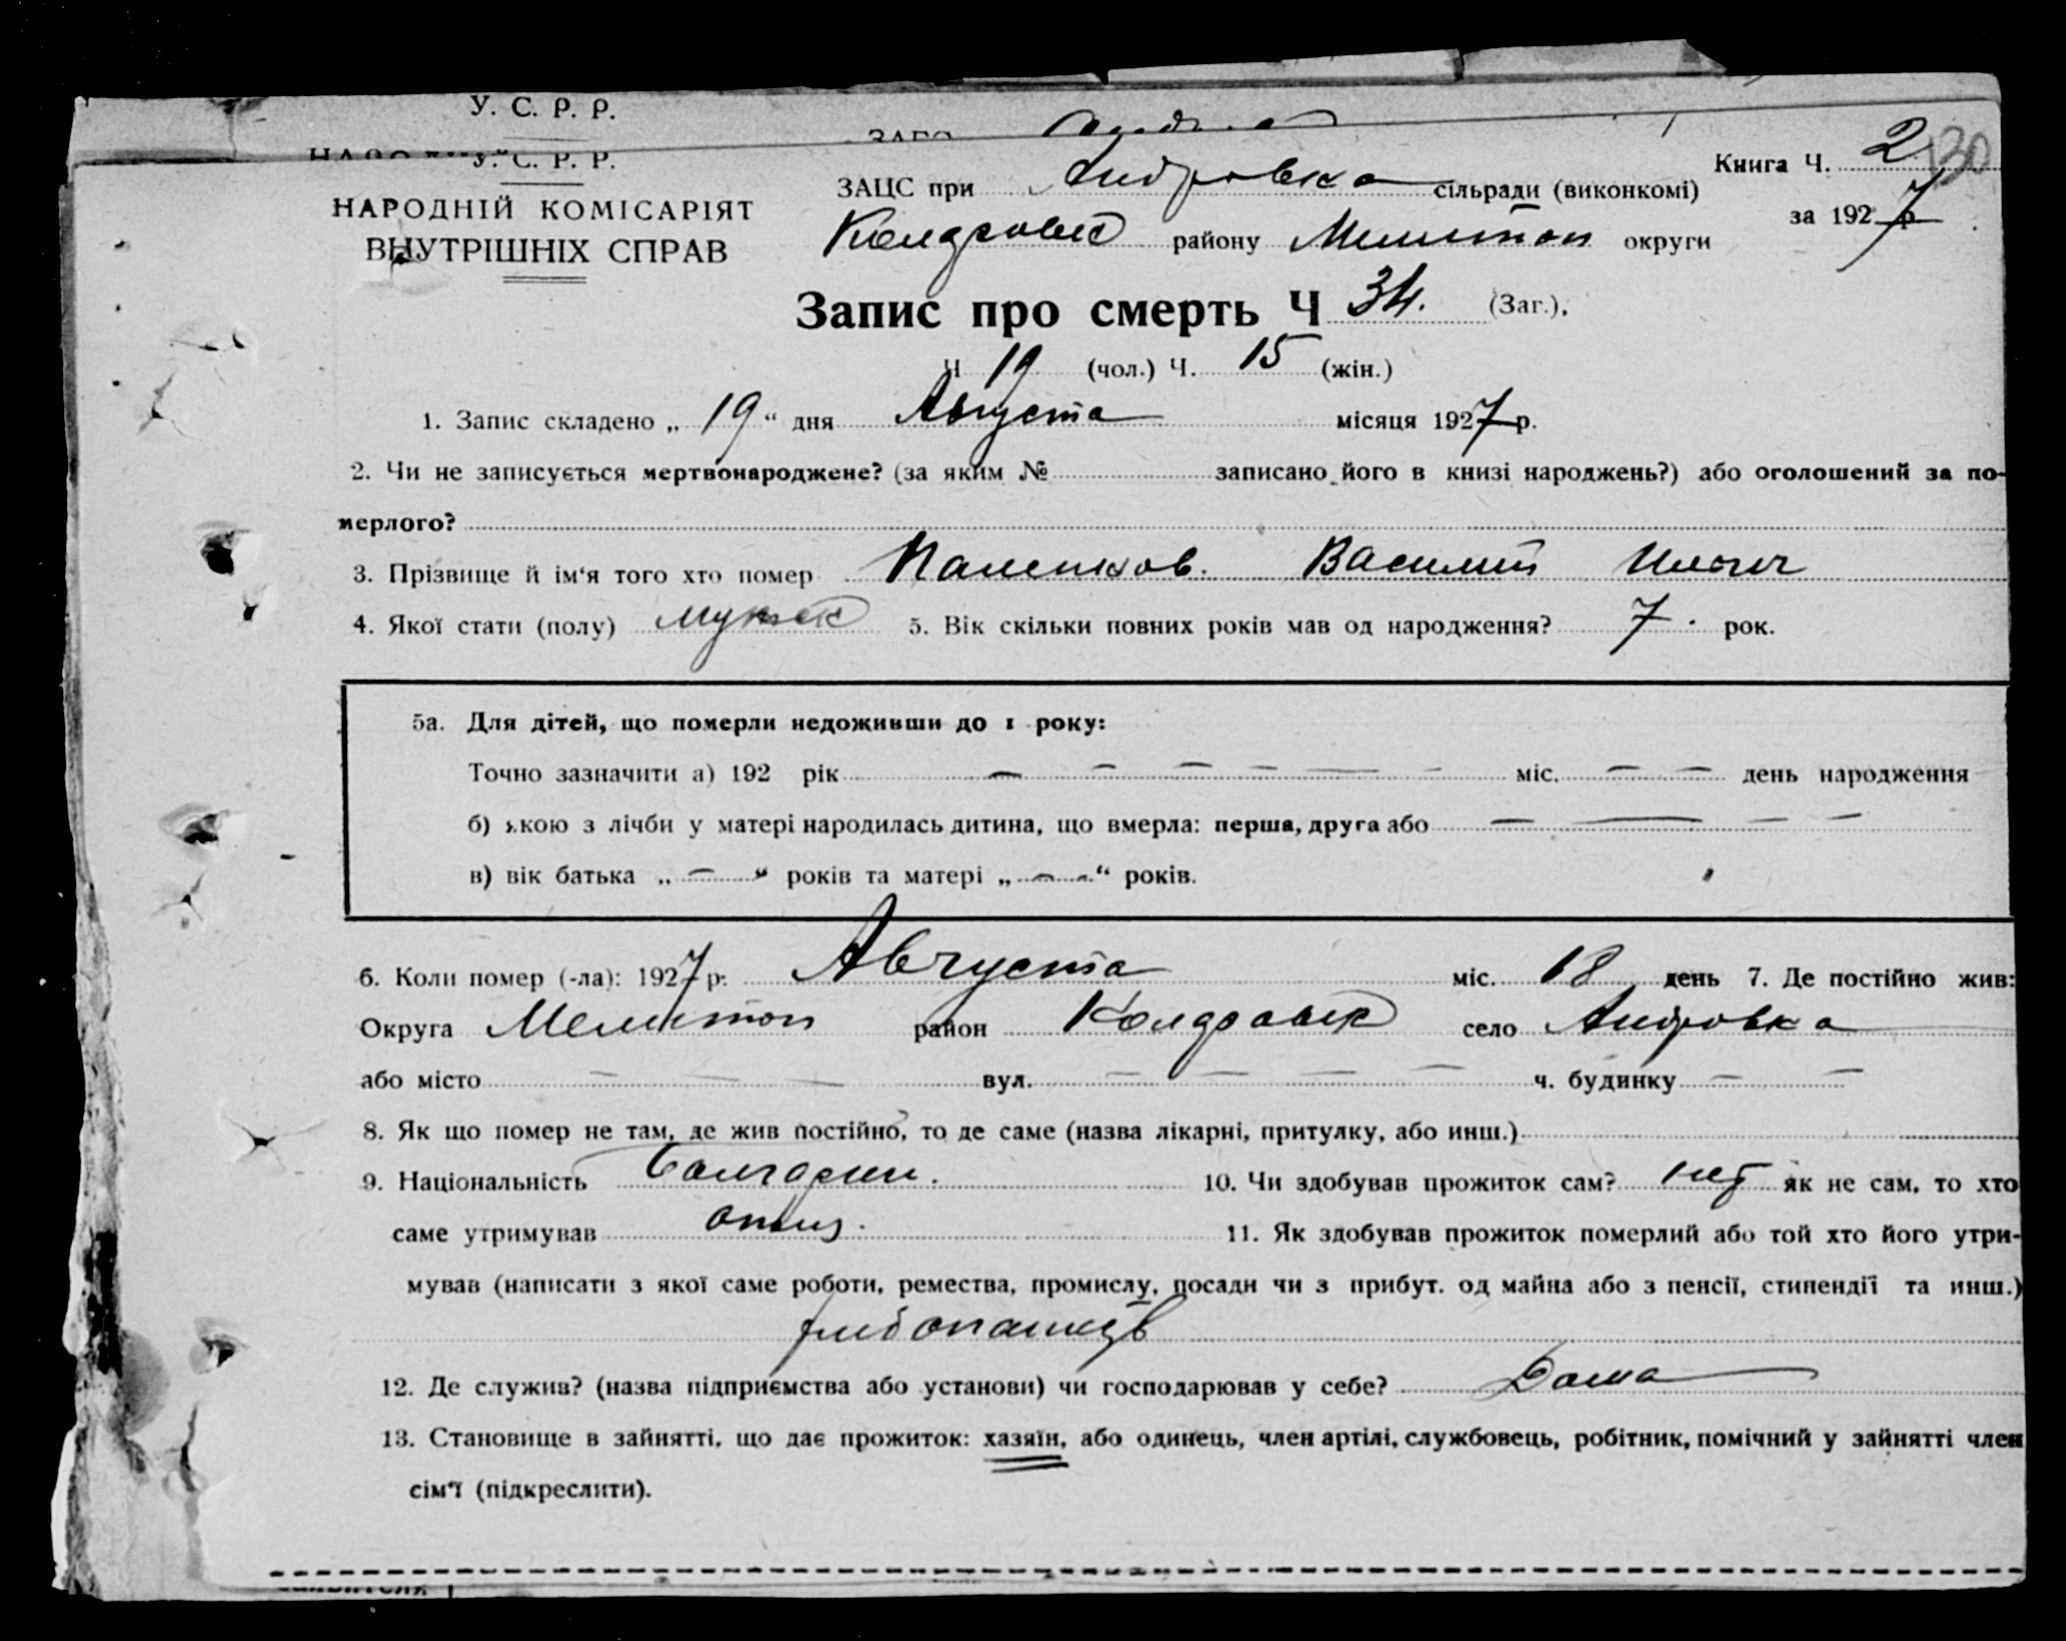 У. С. Р. Р.
У. С. Р. Р.
НАРОДНІЙ КОМІСАРІЯТ
ВНУТРІШНІХ СПРАВ
Книга Ч. 2 30
за 1927 р
ЗАЦС при Андровка сільради (виконкомі)
району Мелитоп округи
Запис про смерть Ч 34. (Заг.),
Ч 19 (чол.) Ч. 15 (жін.)
1. Запис складено „ 19 “ дня Августа місяця 1927 р.
2. Чи не записується мертвонароджене? (за яким № записано його в книзі народжень?) або оголошений за по-
мерлого?
3. Прізвище й ім‘я того хто помер Василий Ильич
4. Якої стати (полу) мужск 5. Вік скільки повних років мав од народження? 7. рок.
5а. Для дітей, що померли недоживши до 1 року:
Точно зазначити а) 192 рік — — — — — — міс. — — день народження
б) якою з лічби у матері народилась дитина, що вмерла: перша, друга або — — — —
в) вік батька „ — “ років та матері „ — - “ років.
6. Коли помер (-ла): 1927 р. Августа міс. 18 день 7. Де постійно жив:
Округа Мелитоп район село Андровка
або місто — — — вул. — — — — ч. будинку — —
8. Як що помер не там, де жив постійно, то де саме (назва лікарні, притулку, або инш.)
9. Національність Болгарин. 10. Чи здобував прожиток сам? нет як не сам, то хто
саме утримував отец. 11. Як здобував прожиток померлий або той хто його утри-
мував (написати з якої саме роботи, ремества, промислу, посади чи з прибут. од майна або з пенсії, стипендії та инш.)
хлебопашец
12. Де служив? (назва підприємства або установи) чи господарював у себе? Дома
13. Становище в зайнятті, що дає прожиток: хазяїн, або одинець, член артілі, службовець, робітник, помічний у зайнятті член
сім‘ї (підкреслити).